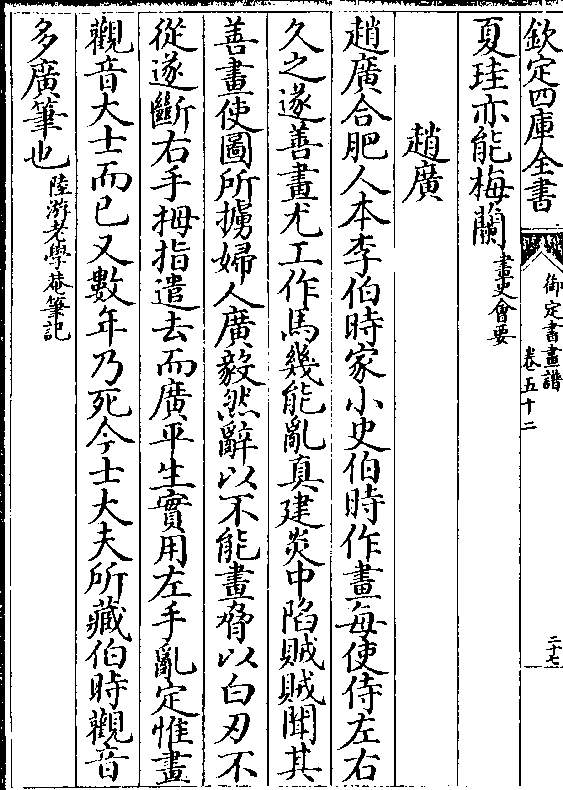 欽定四庫全書
御定書畫譜
卷五十二
二十七
夏珪亦能梅蘭畫史會要
趙廣
趙廣合肥人本李伯時家小史伯時作畫每使侍左右
久之遂善畫尤工作馬幾能亂真建炎中陷賊賊聞其
善畫使圖所擄婦人廣毅然辭以不能畫脅以白刃不
從遂斷右手拇指遣去而廣平生實用左手亂定惟畫
觀音大士而已又數年乃死今士大夫所藏伯時觀音
多廣筆也陸游老學菴筆記